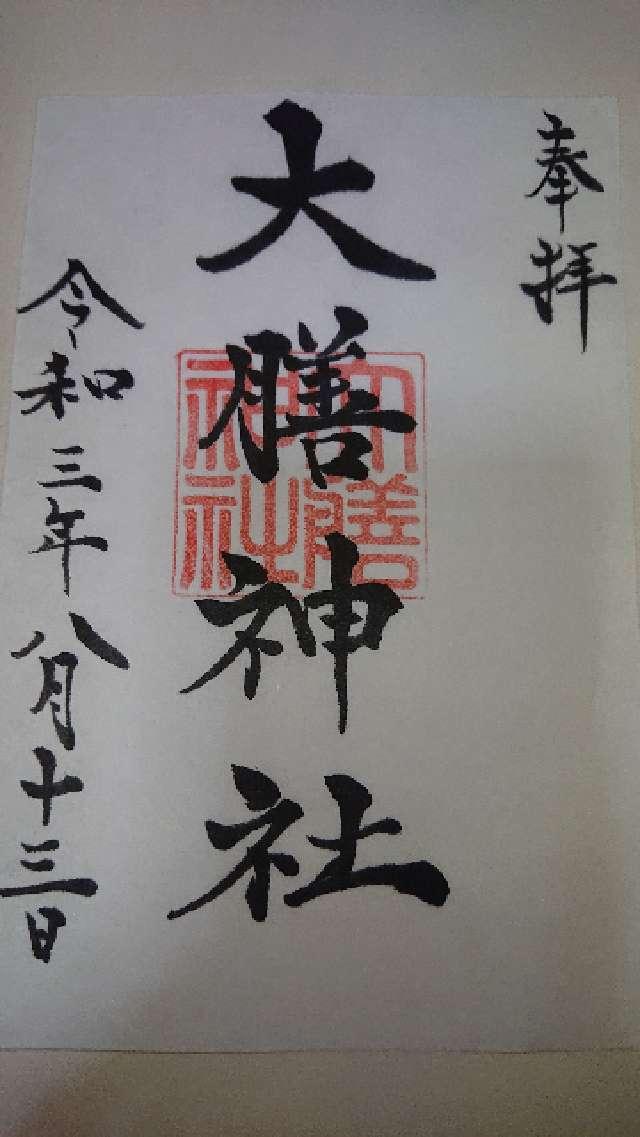 奉拝
大膳神社
大膳神社
令和三年八月十三日